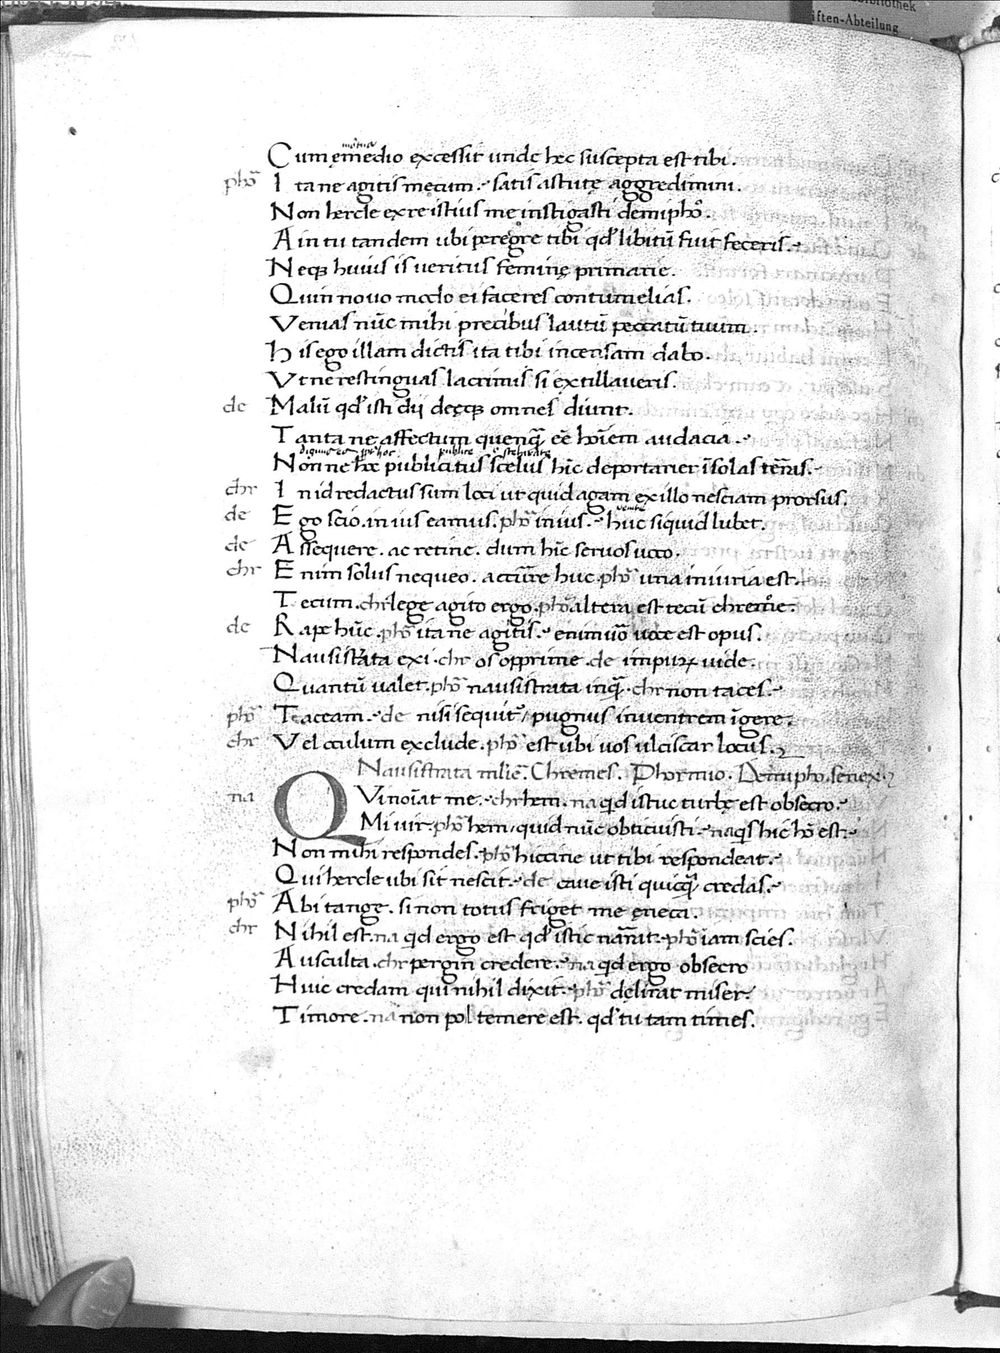 Cum ęmedio excessit unde hec suscepta est tibi.
phō I ta ne agitis mecum. satis astutę aggredimini.
Non hercle ex re istius me instigasti demiphō.
Ain tu tandem ubi peregre tibi qđ libitū fuit feceris.
Neqꝫ huius is ueritus feminę primarie.
Quin nouo modo ei faceres contumelias.
Venias nūc mihi precibus lautū peccatū tuum.
His ego illam dictis ita tibi incensam dabo.
Vt ne restinguas lacrimis si extillaueris.
de Malū qđ isti dij deęqꝫ omnes duint.
Tanta ne affectum quenq̄ eē hoīem audacia.
Non ne hoc publicitus scelus hīc deportarier īsolas terras.
chr In id redactus sum loci ut quid agam ex illo nesciam prorsus.
de Ego scio. in ius eamus. phō in ius. hūc siquid lubet.
de Assequere. ac retine. dum hīc seruos uoco.
chr Enim solus nequeo. accurre huc. phō una iniuria est.
Tecum. chr lege agito ergo. phō altera est tecū chreme.
de Rape hūc. phō ita ne agitis. enimuō uoce est opus.
Nausistrata exi. chr os opprime. de impuꝝ uide.
Quantū ualet. phō nausistrata inq̄. chr non taces.
phō Taceam. de nisi sequit̄ pugnus inuentrem īgere.
chr Vel oculum exclude. phō est ubi uos ulciscar locus.
Nausistrata mliē. Chremes. Phormio. Demipho. senex.
na Qui noīat me. chr hem. na qđ istuc turbę est obsecro.
Mi uir. phō hem, quid nūc obticuisti. na qs hic hō est.
Non mihi respondes. phō hiccine ut tibi respondeat.
Qui hercle ubi sit nescit. de caue isti quicq̄ credas.
phō Abi tange. si non totus friget me eneca.
chr Nihil est. na qđ ergo est qđ istic narrat. phō iam scies.
Ausculta. chr pergin credere. na qđ ergo obsecro
Huic credam qui nihil dixit. phō delirat miser.
Timore. na non pol temere est. qđ tu tam times.